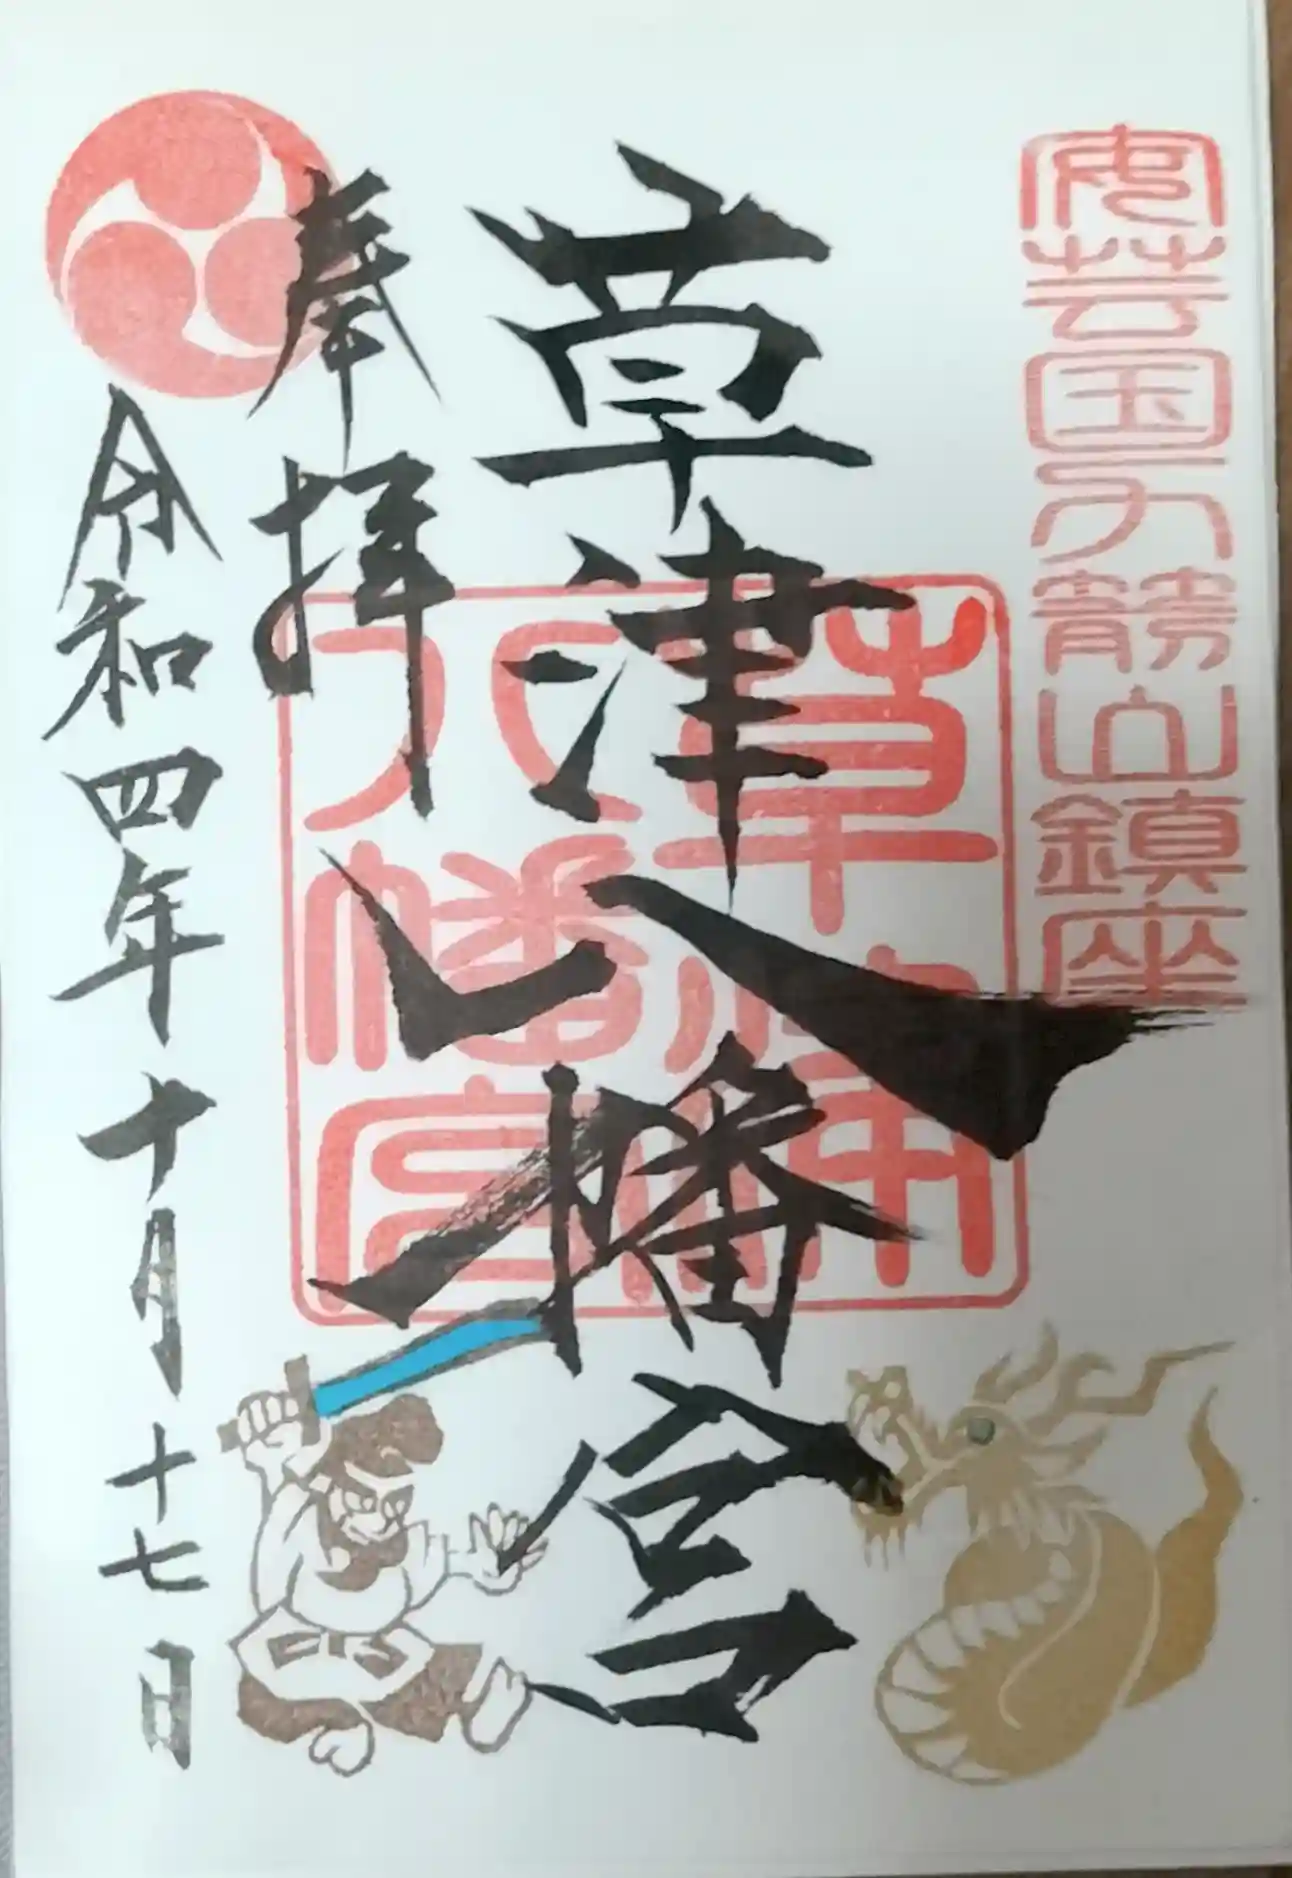 安芸国力箭山鎮座
草津八幡宮
草津八幡宮
奉拝
令和四年十月十七日